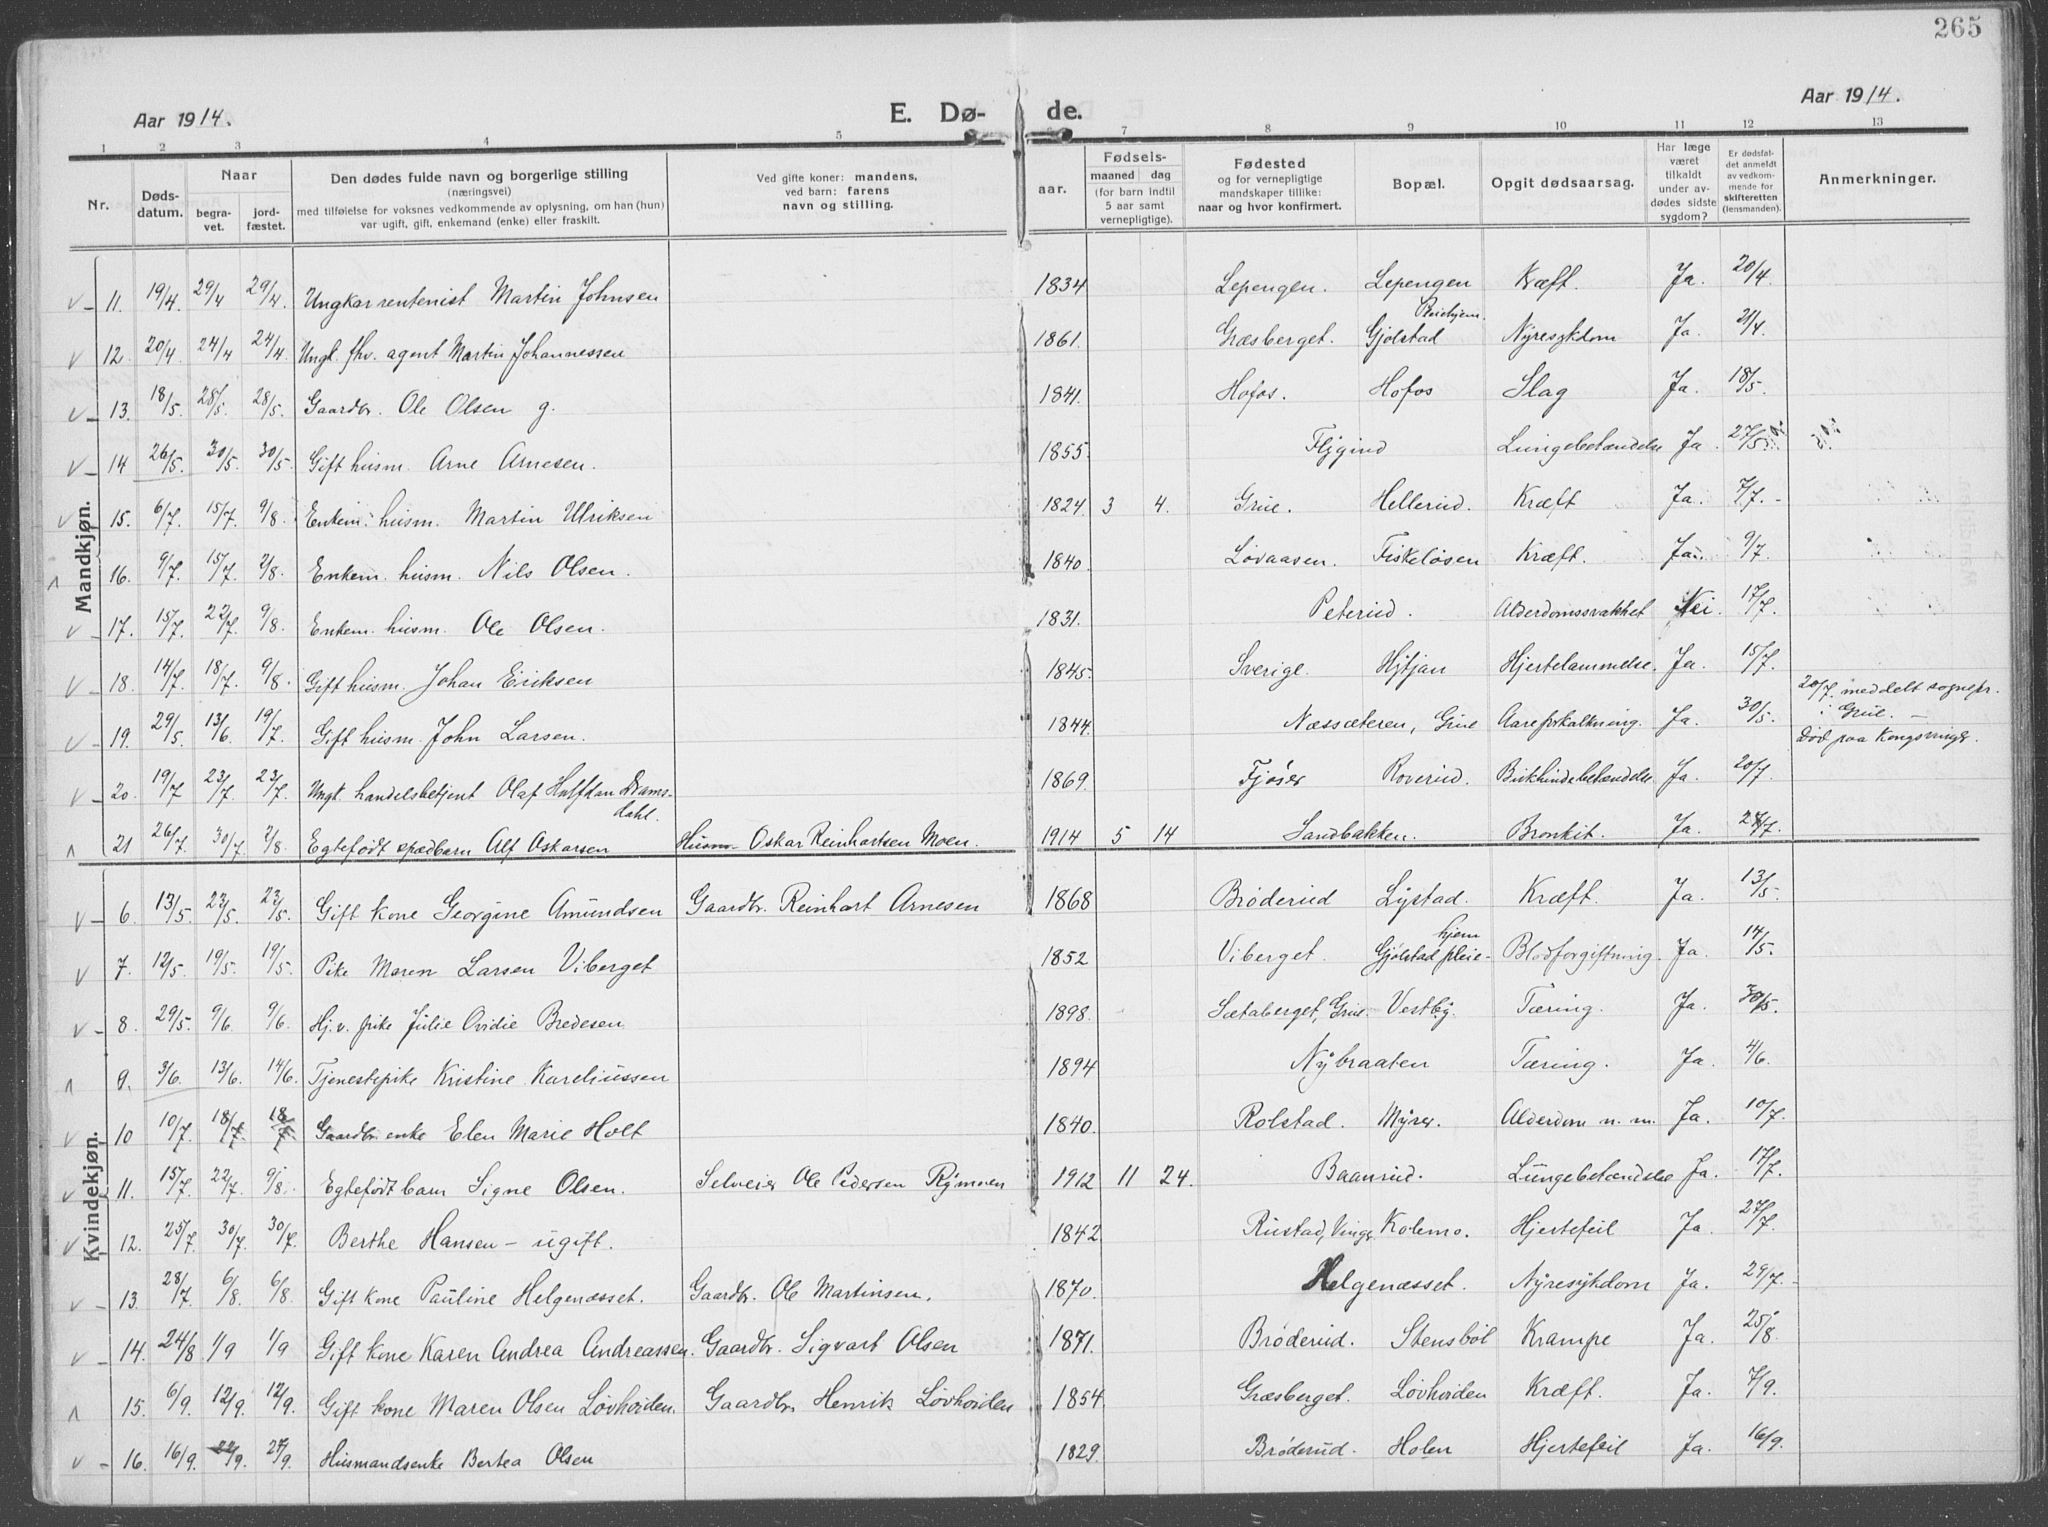 265
Aar 1914.
E. Dø- de.
Aar 1914.
1 2 3 4 5 6 7 8 9 10 11 12 13
Nr.
Døds-
datum.
Naar
begra-
vet.
jord-
fæstet.
Den dødes fulde navn og borgerlige stilling
(næringsvei)
med tilføielse for voksnes vedkommende av oplysning, om han (hun)
var ugift, gift, enkemand (enke) eller fraskilt.
Ved gifte koner: mandens,
ved barn: farens
navn og stilling.
aar.
Fødsels-
maaned dag
(for barn indtil
5 aar samt
vernepligtige).
Fødested
og for vernepligtige
mandskaper tillike:
naar og hvor konfirmert.
Bopæl.
Opgit dødsaarsag.
Har læge
været
tilkaldt
under av-
dødes sidste
sygdom?
Er dødsfal-
det anmeldt
av vedkom-
mende for
skifteretten
(lensmanden).
Anmerkninger.
Mandkjøn.
11. 19/4 29/4 29/4. Ungkar rentenist Martin Johnsen 1834 Lepengen. Lepengen Kræft. Ja. 20/4.
12. 20/4 24/4 24/4. Ungk. fhv. agent Martin Johannessen 1861. Græsberget. Gjølstad Pleiehjem. Nyresykdom Ja. 21/4.
13. 18/5. 28/5. 28/5. Gaardbr. Ole Olsen g. 1841. Hofos. Hofos Slag Ja. 18/5.
14 26/5. 30/5. 30/5. Gift husm. Arne Arnesen. 1855. Flygind Lungebetændelse Ja. 27/5
15. 6/7. 15/7. 9/8. Enkem. husm. Martin Ulriksen 1824 3 4. Grue. Hellerud. Kræft Ja. 7/7.
16. 9/7. 15/7. 2/8. Enkem. husm. Nils Olsen. 1840. Løvaasen. Fiskeløsen Kræft. Ja. 9/7.
17. 15/7. 22/7. 9/8. Enkem. husm. Ole Olsen. 1831. Peterud. Alderdomssvakhet Nei. 17/7.
18. 14/7. 18/7. 9/8. Gift husm. Johan Eriksen 1845. Sverige. Hytjan Hjertelammelse. Ja. 15/7.
19. 29/5. 13/6 19/7. Gift husm. John Larsen. 1844. Næssæteren, Grue Aareforkalkning. Ja. 30/5. 20/7. meddelt sognepr.
i Grue. –
Død paa Kongsvinger.
20. 19/7 23/7. 23/7. Ungk. handelsbetjent Olaf Halfdan Drams-
dahl. 1869. Fjøser Roverud. Blikhindebetændelse. Ja. 20/7.
21 26/7. 30/7. 2/8. Egtefødt spædbarn Alf Oskarsen Husm. Oskar Reinhartsen Moen. 1914 5 14 Sandbakken. Bronkit. Ja. 27/7.
Kvindekjøn.
6. 13/5. 23/5. 23/5. Gift kone Georgine Amundsen Gaardbr. Reinhart Arnesen 1868 Brøderud Lystad. Kræft. Ja. 13/5.
7. 12/5. 19/5. 19/5. Pike Maren Larsen Viberget 1852 Viberget. Gjølstad pleie-
hjem Blodforgiftning. Ja. 14/5.
8. 29/5. 9/6. 9/6. Hj.v. pike Julie Ovidie Bredesen 1898. Sætaberget, Grue. Vestby. Tæring. Ja. 30/5.
9. 3/6. 13/6. 14/6. Tjenestepike Kristine Kareliussen 1894 Nybraaten Tæring. Ja. 4/6.
10 10/7. 18/7. 18/7 Gaardbr. enke Elen Marie Holt 1840. Rolstad. Myrer. Alderdom n. m. Ja. 10/7.
11. 15/7. 22/7. 9/8. Egtefødt barn Signe Olsen. Selveier Ole Pedersen Rymoen 1912 11 24. Baanrud. Lungebetændelse Ja. 17/7.
12. 25/7. 30/7. 30/7. Berthe Hansen – ugift. 1842 Rustad, Vinger Kolemo. Hjertefeil Ja. 27/7.
13. 28/7 6/8. 6/8. Gift kone Pauline Helgenæsset. Gaardbr. Ole Martinsen. 1870. Helgenæsset. Nyresykdom Ja. 29/7.
14. 24/8 1/9 1/9 Gift kone Karen Andrea Andreassen. Gaardbr. Sigvart Olsen 1871. Brøderud. Stensbøl Krampe Ja. 25/8.
15. 6/9. 12/9. 12/9. Gift kone Maren Olsen Løvhøiden. Gaardbr. Henrik Løvhøiden 1854. Græsberget. Løvhøiden Kræft. Ja. 7/9.
16. 16/9. 27/9. 27/9. Husmandsenke Bertea Olsen 1829. Brøderud. Holen Hjertefeil Ja. 16/9.